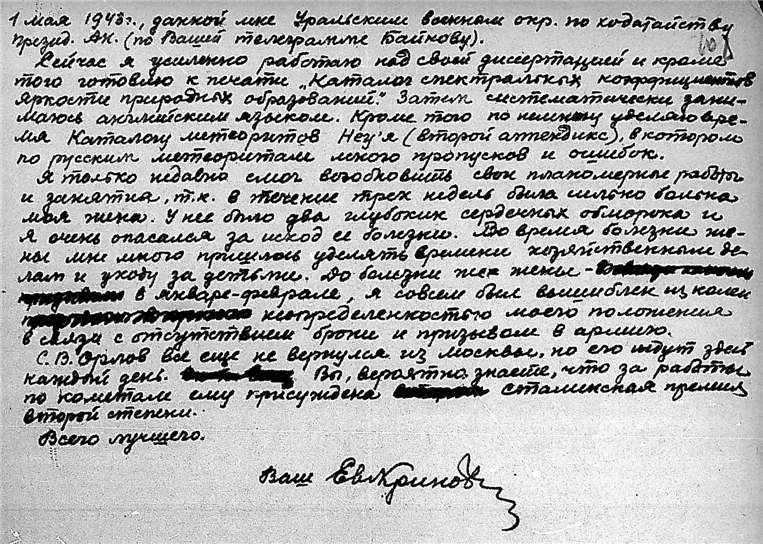 1 мая 1943г., данной мне Уральским военным окр. по ходатайству
Презид. АН. (по Вашей телеграмме Байкову).
Сейчас я усиленно работаю над своей диссертацией и кроме
того готовлю к печати „Каталог спектральных коэффициентов
яркости природных образований." Затем систематически зани-
маюсь английским языком. Кроме того по немногу уделяю вре-
мя Каталогу метеоритов Hey'я (второй аппендикс), в котором
по русским метеоритам много пропусков и ошибок.
Я только недавно смог возобновить свои планомерные работы
и занятия, т.к. в течение трех недель была сильно больна
моя жена. У нее было два глубоких сердечных обморока и
я очень опасался за исход ее болезни. Во время болезни же-
ны мне много пришлось уделять времени хозяйственным де-
лам и уходу за детьми. До болезни же жены -
в январе-феврале, я совсем был вышиблен из колеи
неопределенностью моего положения
в связи с отсутствием брони и призывом в армию.
С. В. Орлов все еще не вернулся из Москвы, но его ждут здесь
каждый день. Вы, вероятно знаете, что за работы
по кометам ему присуждена сталинская премия
второй степени.
Всего лучшего.
Ваш ЕвКринов